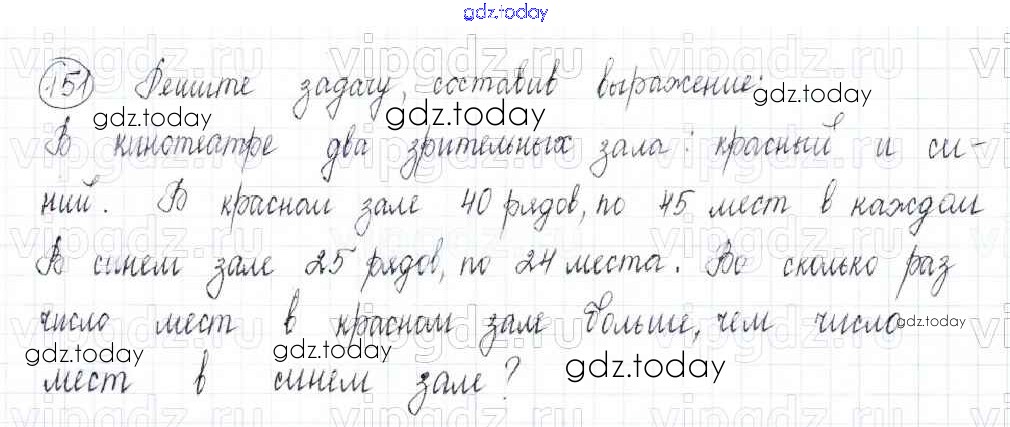 gdz.today
151 Решите задачу, составив выражение:
gdz.today gdz.today
В кинотеатре два зрительных зала: красный и си-
ний. В красном зале 40 рядов, по 45 мест в каждом
В синем зале 25 рядов, по 24 места. Во сколько раз
число мест в красном зале больше, чем число gdz.today
gdz.today gdz.today gdz.today
мест в синем зале?